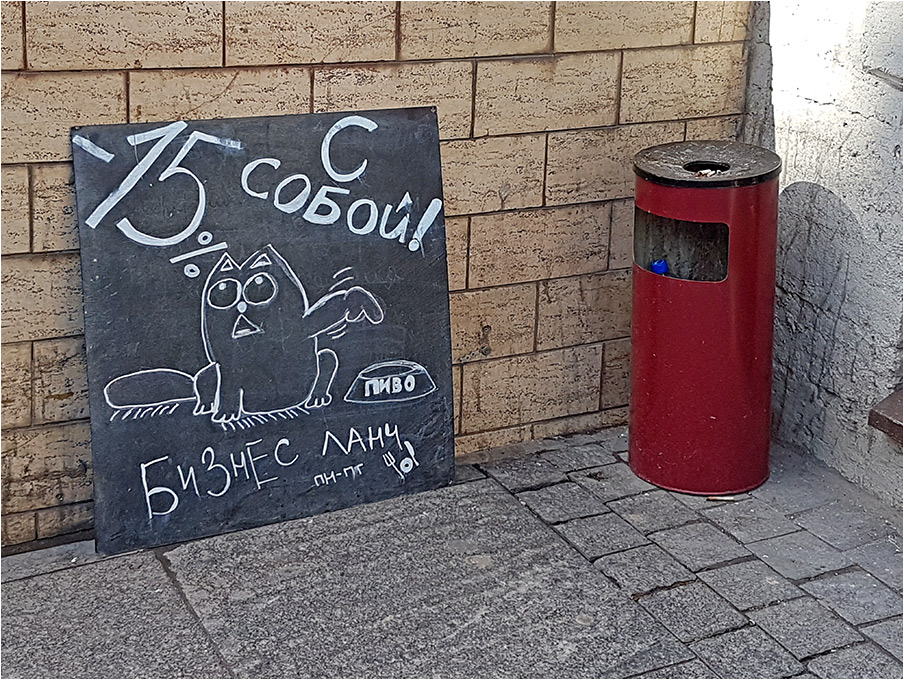 -15%
С
СОБОЙ!
ПИВО
БИЗНЕС ЛАНЧ
ПН-ПТ